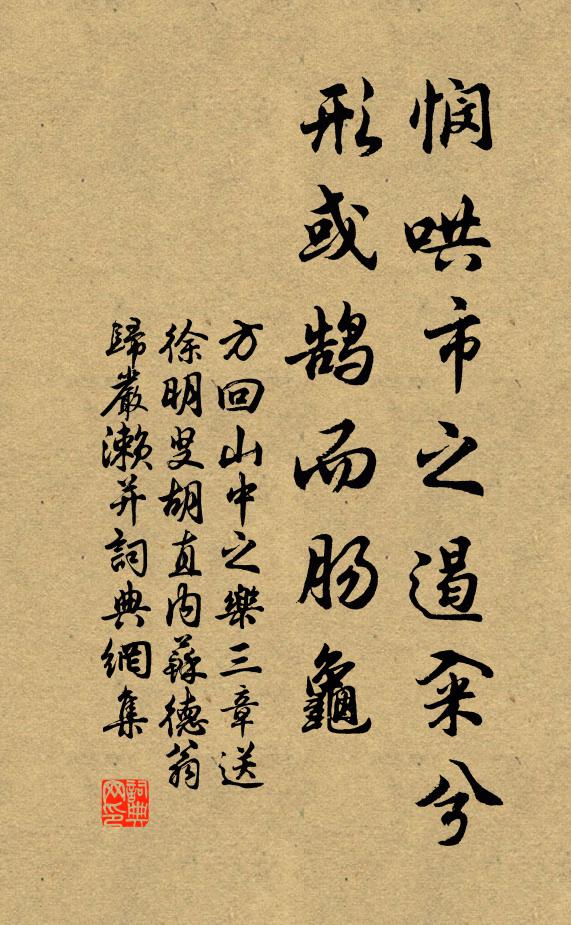 悯哄市之遏籴兮
形或鵠而肠龜
方回山中之樂三章送
徐明叟胡直内蘇德翁
歸嚴瀨并詞典網集
詞典网印